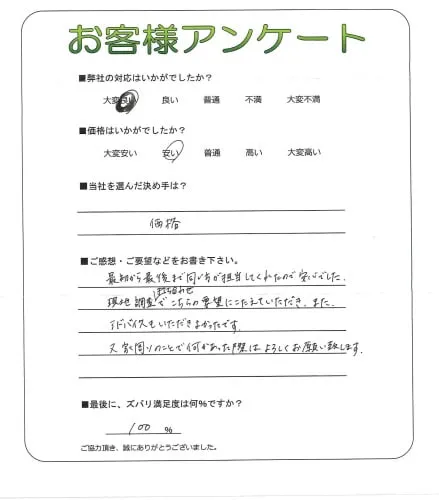 お客様アンケート
■弊社の対応はいかがでしたか?
大変良い 良い 普通 不満 大変不満
■価格はいかがでしたか?
大変安い 安い 普通 高い 大変高い
■当社を選んだ決め手は?
価格
■ご感想・ご要望などをお書き下さい。
最初から最後まで同じ方が担当してくれたので安心でした。
打ち合わせ
現地調査でこちらの要望にこたえていただき、また、
アドバイスもいただきよかったです。
又、家周りのことで何かあった際はよろしくお願い致します。
■最後に、ズバリ満足度は何%ですか?
100 %
ご協力頂き、誠にありがとうございました。